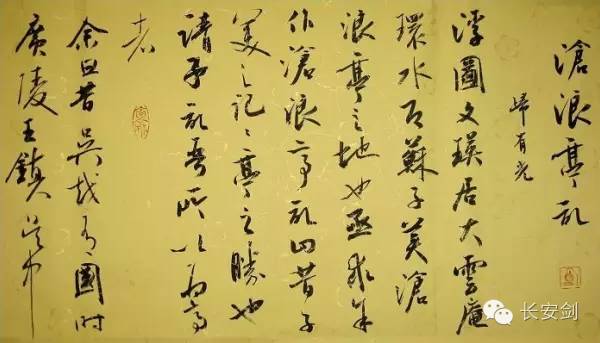 滄浪亭記
歸有光
浮圖文瑛居大雲庵
環水即蘇子美滄
浪亭之地也亟求余
作滄浪亭記曰昔子
美之記々亭之勝也
請子記吾所以為亭
者
余曰昔吳越有國時
廣陵王鎮吳中
长安剑